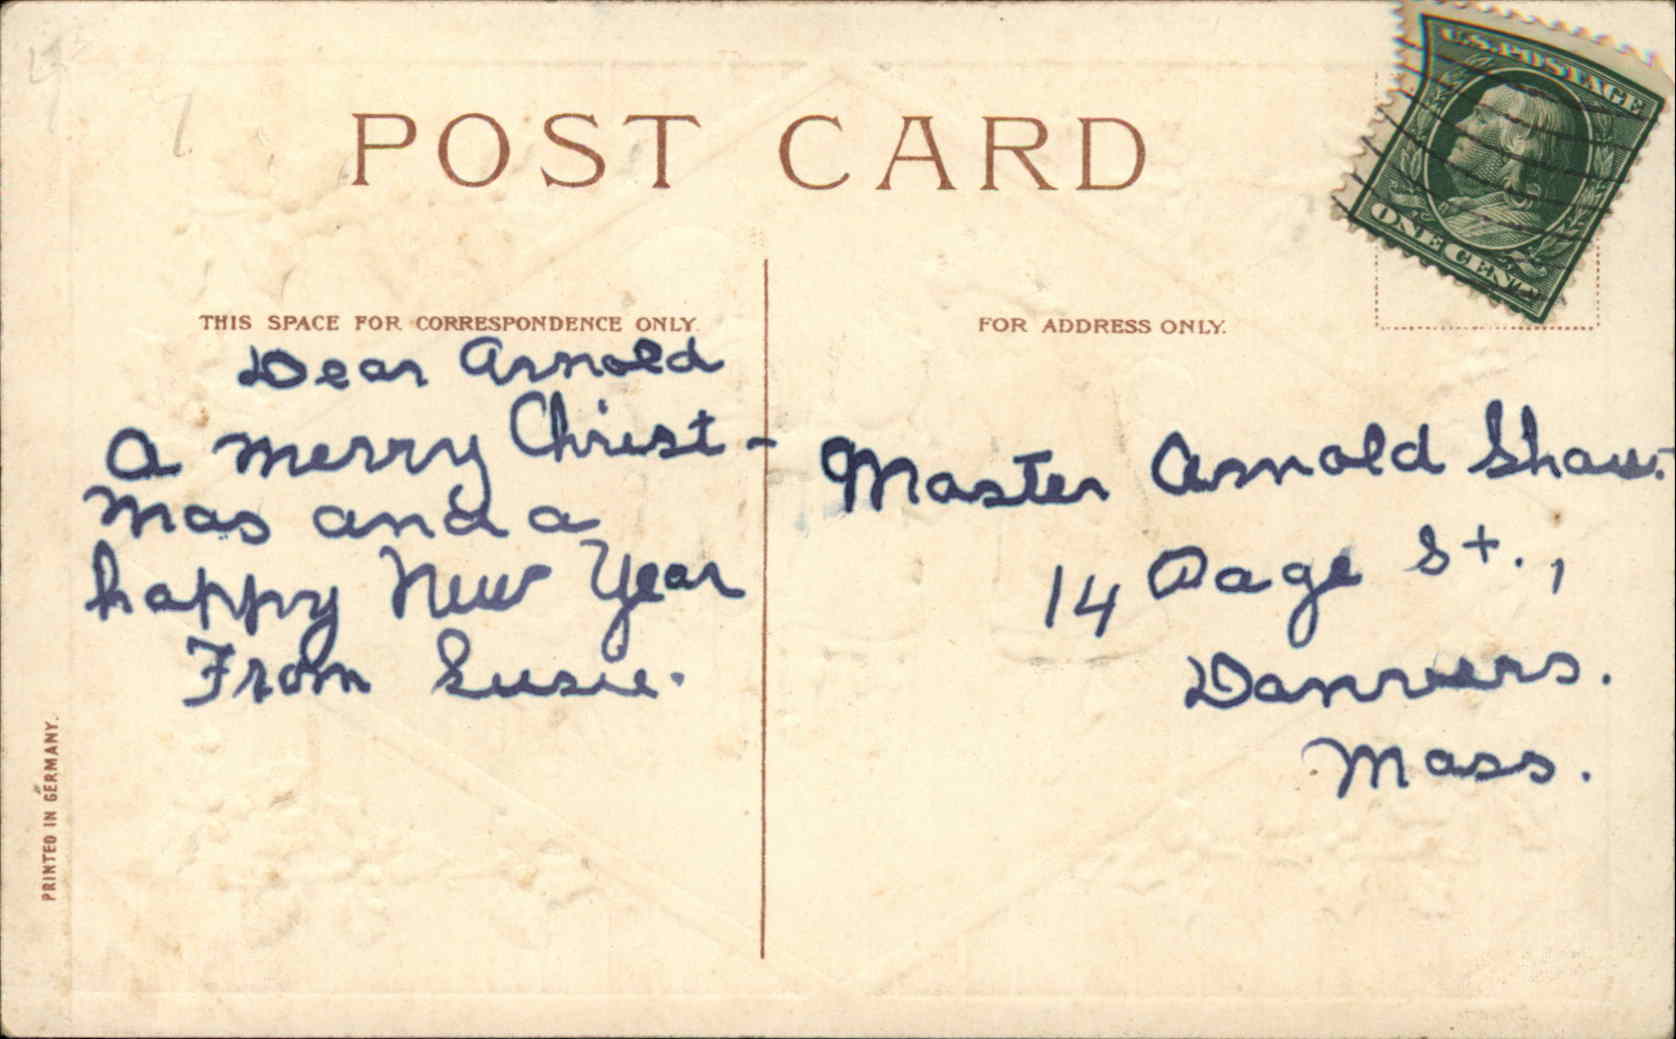 POST CARD
THIS SPACE FOR CORRESPONDENCE ONLY.
Dear Arnold
A merry Christ-
mas and a
happy New Year
From Susie.
PRINTED IN GERMANY.
U.S. POSTAGE
ONE CENT
FOR ADDRESS ONLY.
Master Arnold Shaw.
14 Page St.,
Danvers.
Mass.